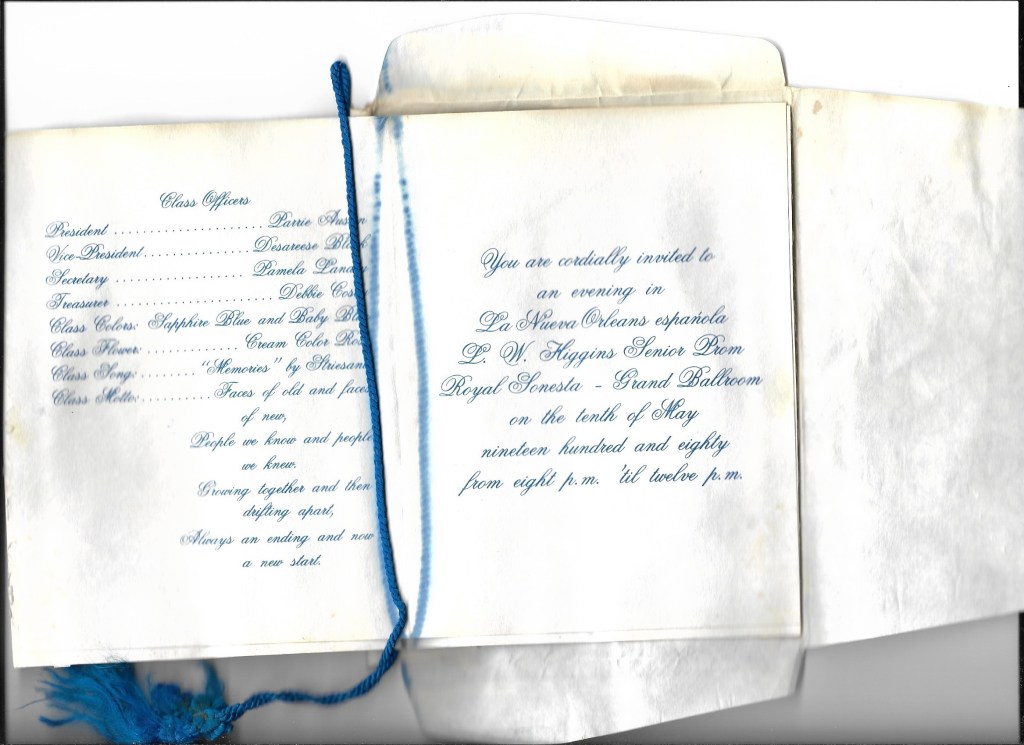 Class Officers
President ...................... Parrie Austin
Vice-President ............ Desareese
Secretary .................... Pamela Landry
Treasurer ....................... Debbie
Class Colors: Sapphire Blue and Baby Blue
Class Flower: ............ Cream Color Rose
Class Song: ........ "Memories" by Striesand
Class Motto: .......... Faces of old and faces
of new,
People we know and people
we knew.
Growing together and then
drifting apart,
Always an ending and now
a new start.
You are cordially invited to
an evening in
La Nueva Orleans española
L. W. Higgins Senior Prom
Royal Sonesta - Grand Ballroom
on the tenth of May
nineteen hundred and eighty
from eight p.m. 'til twelve p.m.